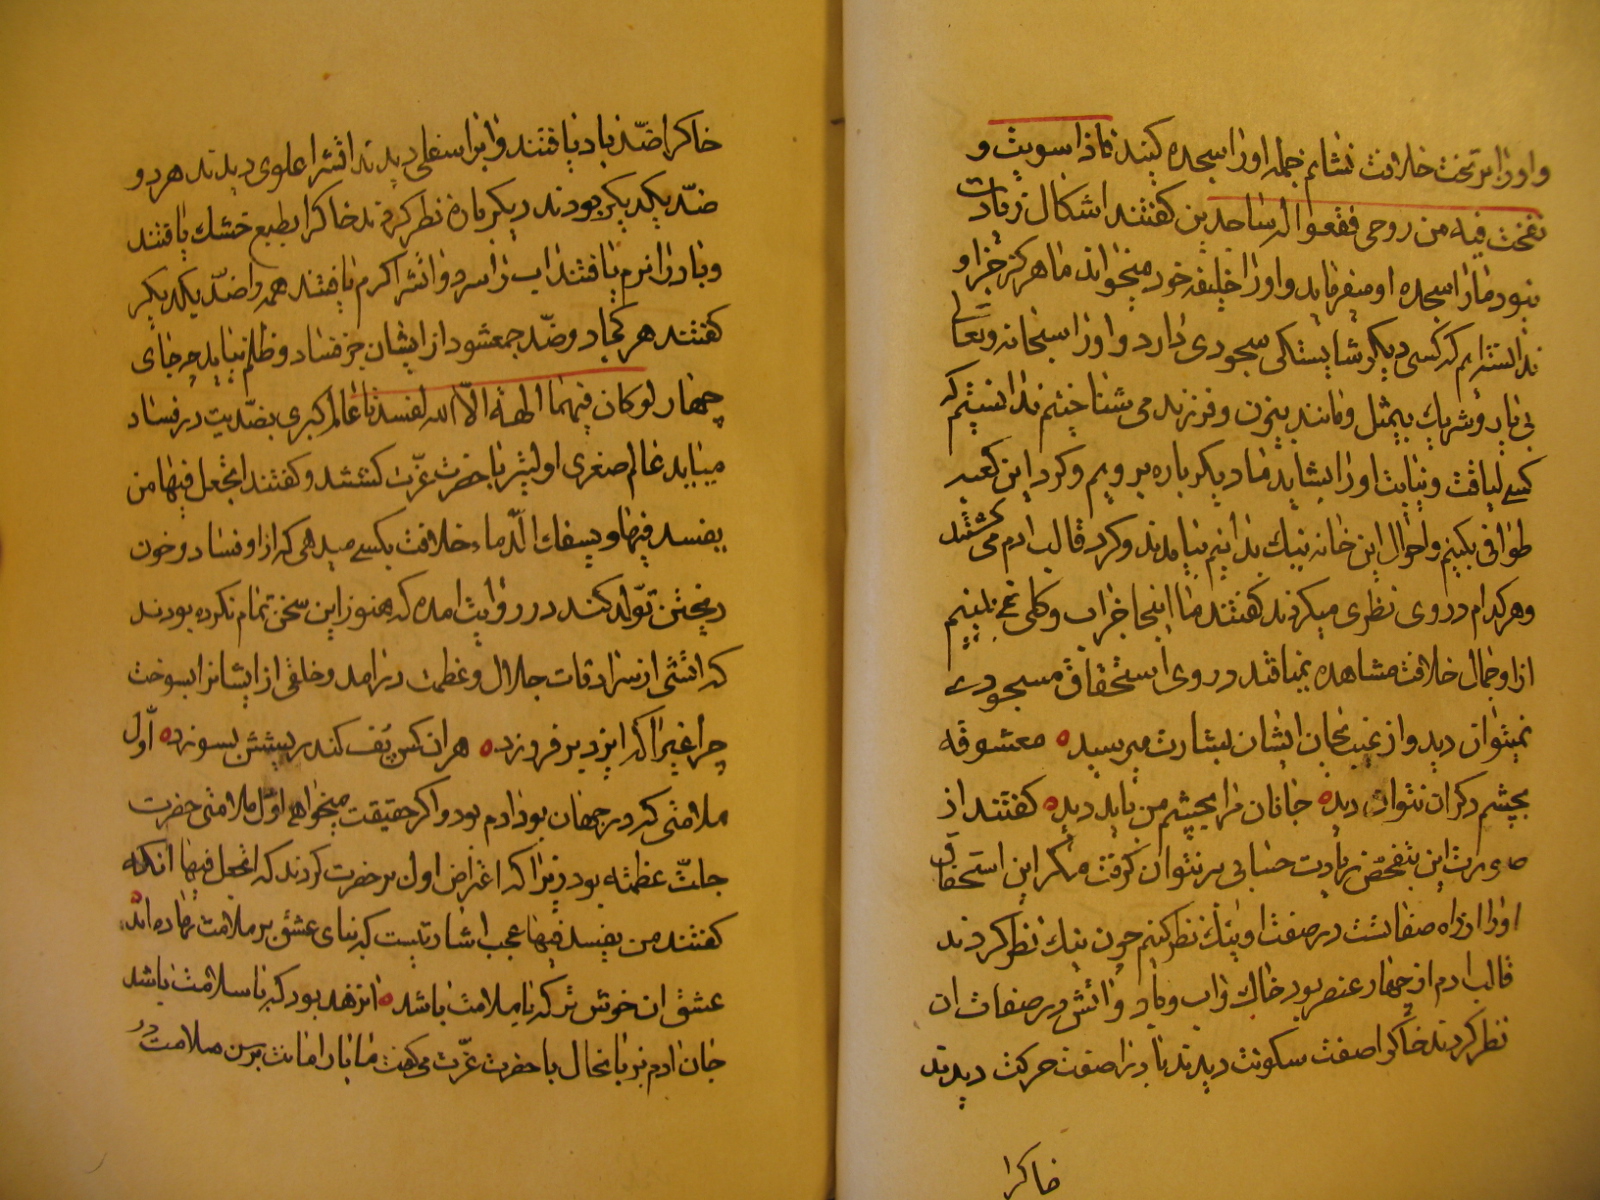 و اورا بر تخت خلافت نشانم جمله اورا سجده کنید فاذا سویت و
نفخت فیه من روحی فقعوا له ساجدین کفتند اشکال زیادت
ببود مارا سجده او میفرماید و اورا خلیفه خود میخواند ما هرکز جز او
ندانسته ایم که کسی دیکر شایستکی سجودی دارد و اورا سبحانه و تعالی
بی یار و شریک بیمثل و مانند بیزن و فرزند می شناختیم ندانستیم که
کسی لیاقت و نیابت اورا بشاید ما دیکر باره برویم و کرد این کعبه
طوافی بکنیم و احوال این خانه نیک بدانیم بیامدند و کرد قالب ادم می کشتند
و هرکدام در وی نظری میکردند کفتند ما اینجا جز اب و کلی نمی بینیم
ازو جمال خلافت مشاهده نمیافتد در وی استحقاق مسجودی
نمیتوان دید و از غیب بجان ایشان بشارت میرسید معشوقه
بچشم دکران نتوان دید جانان مرا بچشم من باید دید کفتند از
صورت این شخص زیادت حسابی بر نتوان کرفت مکر این استحقاق
اورا از راه صفاتست در صفت او نیک نظر کنیم چون نیک نظر کردند
قالب ادم از چهار عنصر بود خاک و اب و باد و اتش در صفات ان
نظر کردند خاکرا صفت سکونت دیدند باد را صفت حرکت دیدند
خاکرا
خاکرا ضد باد یافتند و ابرا سفلی دیدند اتشرا علوی دیدند هر دو
ضد یکدیکر بودند دیکر باره نظر کردند خاکرا بطبع خشک یافتند
و بادرا نرم یافتند اب را سرد و اتشرا کرم یافتند همه را ضد یکدیکر
کفتند هر کجا دو ضد جمع شود از ایشان جز فساد و ظلم نیاید چه جای
چهار لوکان فیهما الهة الا الله لفسدتا عالم کبری بضدیت در فساد
میاید عالم صغری اولیتر با حضرت عزت کشتند و کفتند اتجعل فیها من
یفسد فیها و یسفک الدماء خلافت بکسی میدهی که ازو فساد و خون
ریختن تولد کند در روایت امده که هنوز این سخن تمام نکرده بودند
که اتشی از سرادقات جلال و عظمت درامد و خلقی از ایشانرا بسوخت
چراغیرا که ایزد بر فروزد هر ان کس پف کند ریشش بسوزد اول
ملامتی که در جهان بود ادم بود و اکر حقیقت میخواهی اول ملامتی حضرت
جلت عظمته بود زیرا که اعتراض اول بر حضرت کردند که اتجعل فیها انکه
کفتند من یفسد فیها عجب اشارتیست که بنای عشق بر ملامت نهاده اند
عشق ان خوش تر که با ملامت باشد ان زهد بود که با سلامت باشد
جان ادم بزبان حال با حضرت عزت می کفت ما بار امانت برسن ملامت در